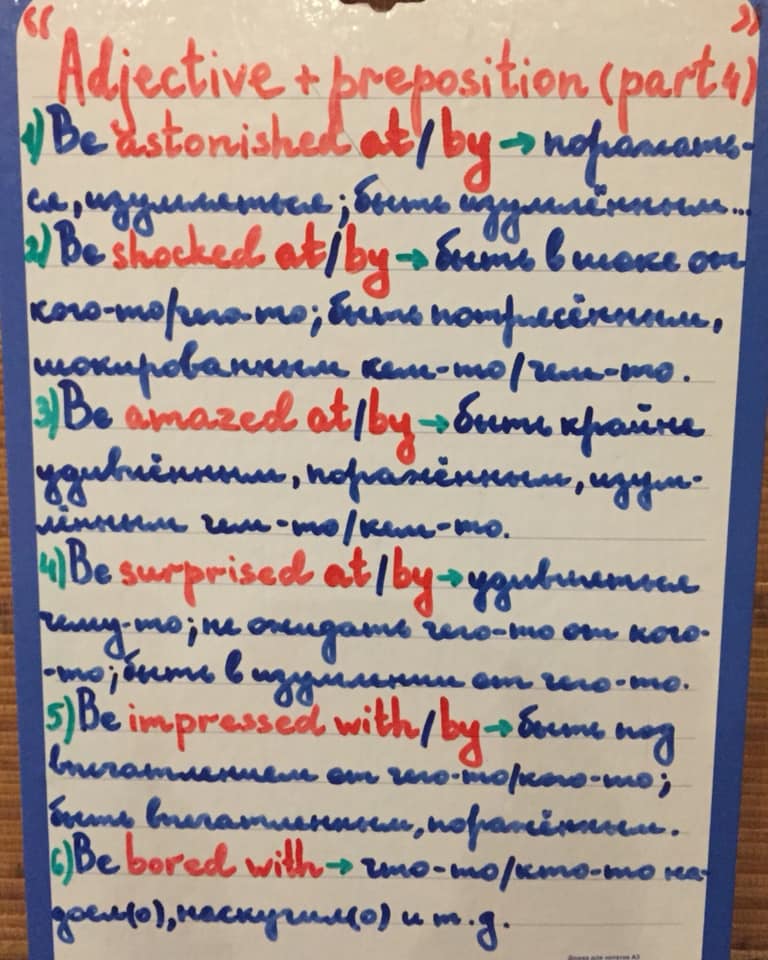 “ ”
Adjective + preposition (part 4)
1) Be astonished at/by → поражать-
ся, изумляться; быть изумлённым...
2) Be shocked at/by → быть в шоке от
кого-то/чего-то; быть потрясённым,
шокированным кем-то/чем-то.
3) Be amazed at/by → быть крайне
удивлённым, поражённым, изум-
лённым чем-то/кем-то.
4) Be surprised at/by → удивляться
чему-то; не ожидать чего-то от кого-
-то; быть в изумлении от чего-то.
5) Be impressed with/by → быть под
впечатлением от чего-то/кого-то;
быть впечатленным, поражённым.
6) Be bored with → что-то/кто-то на-
доел(о), наскучил(о) и т.д.
Доска для записей А3